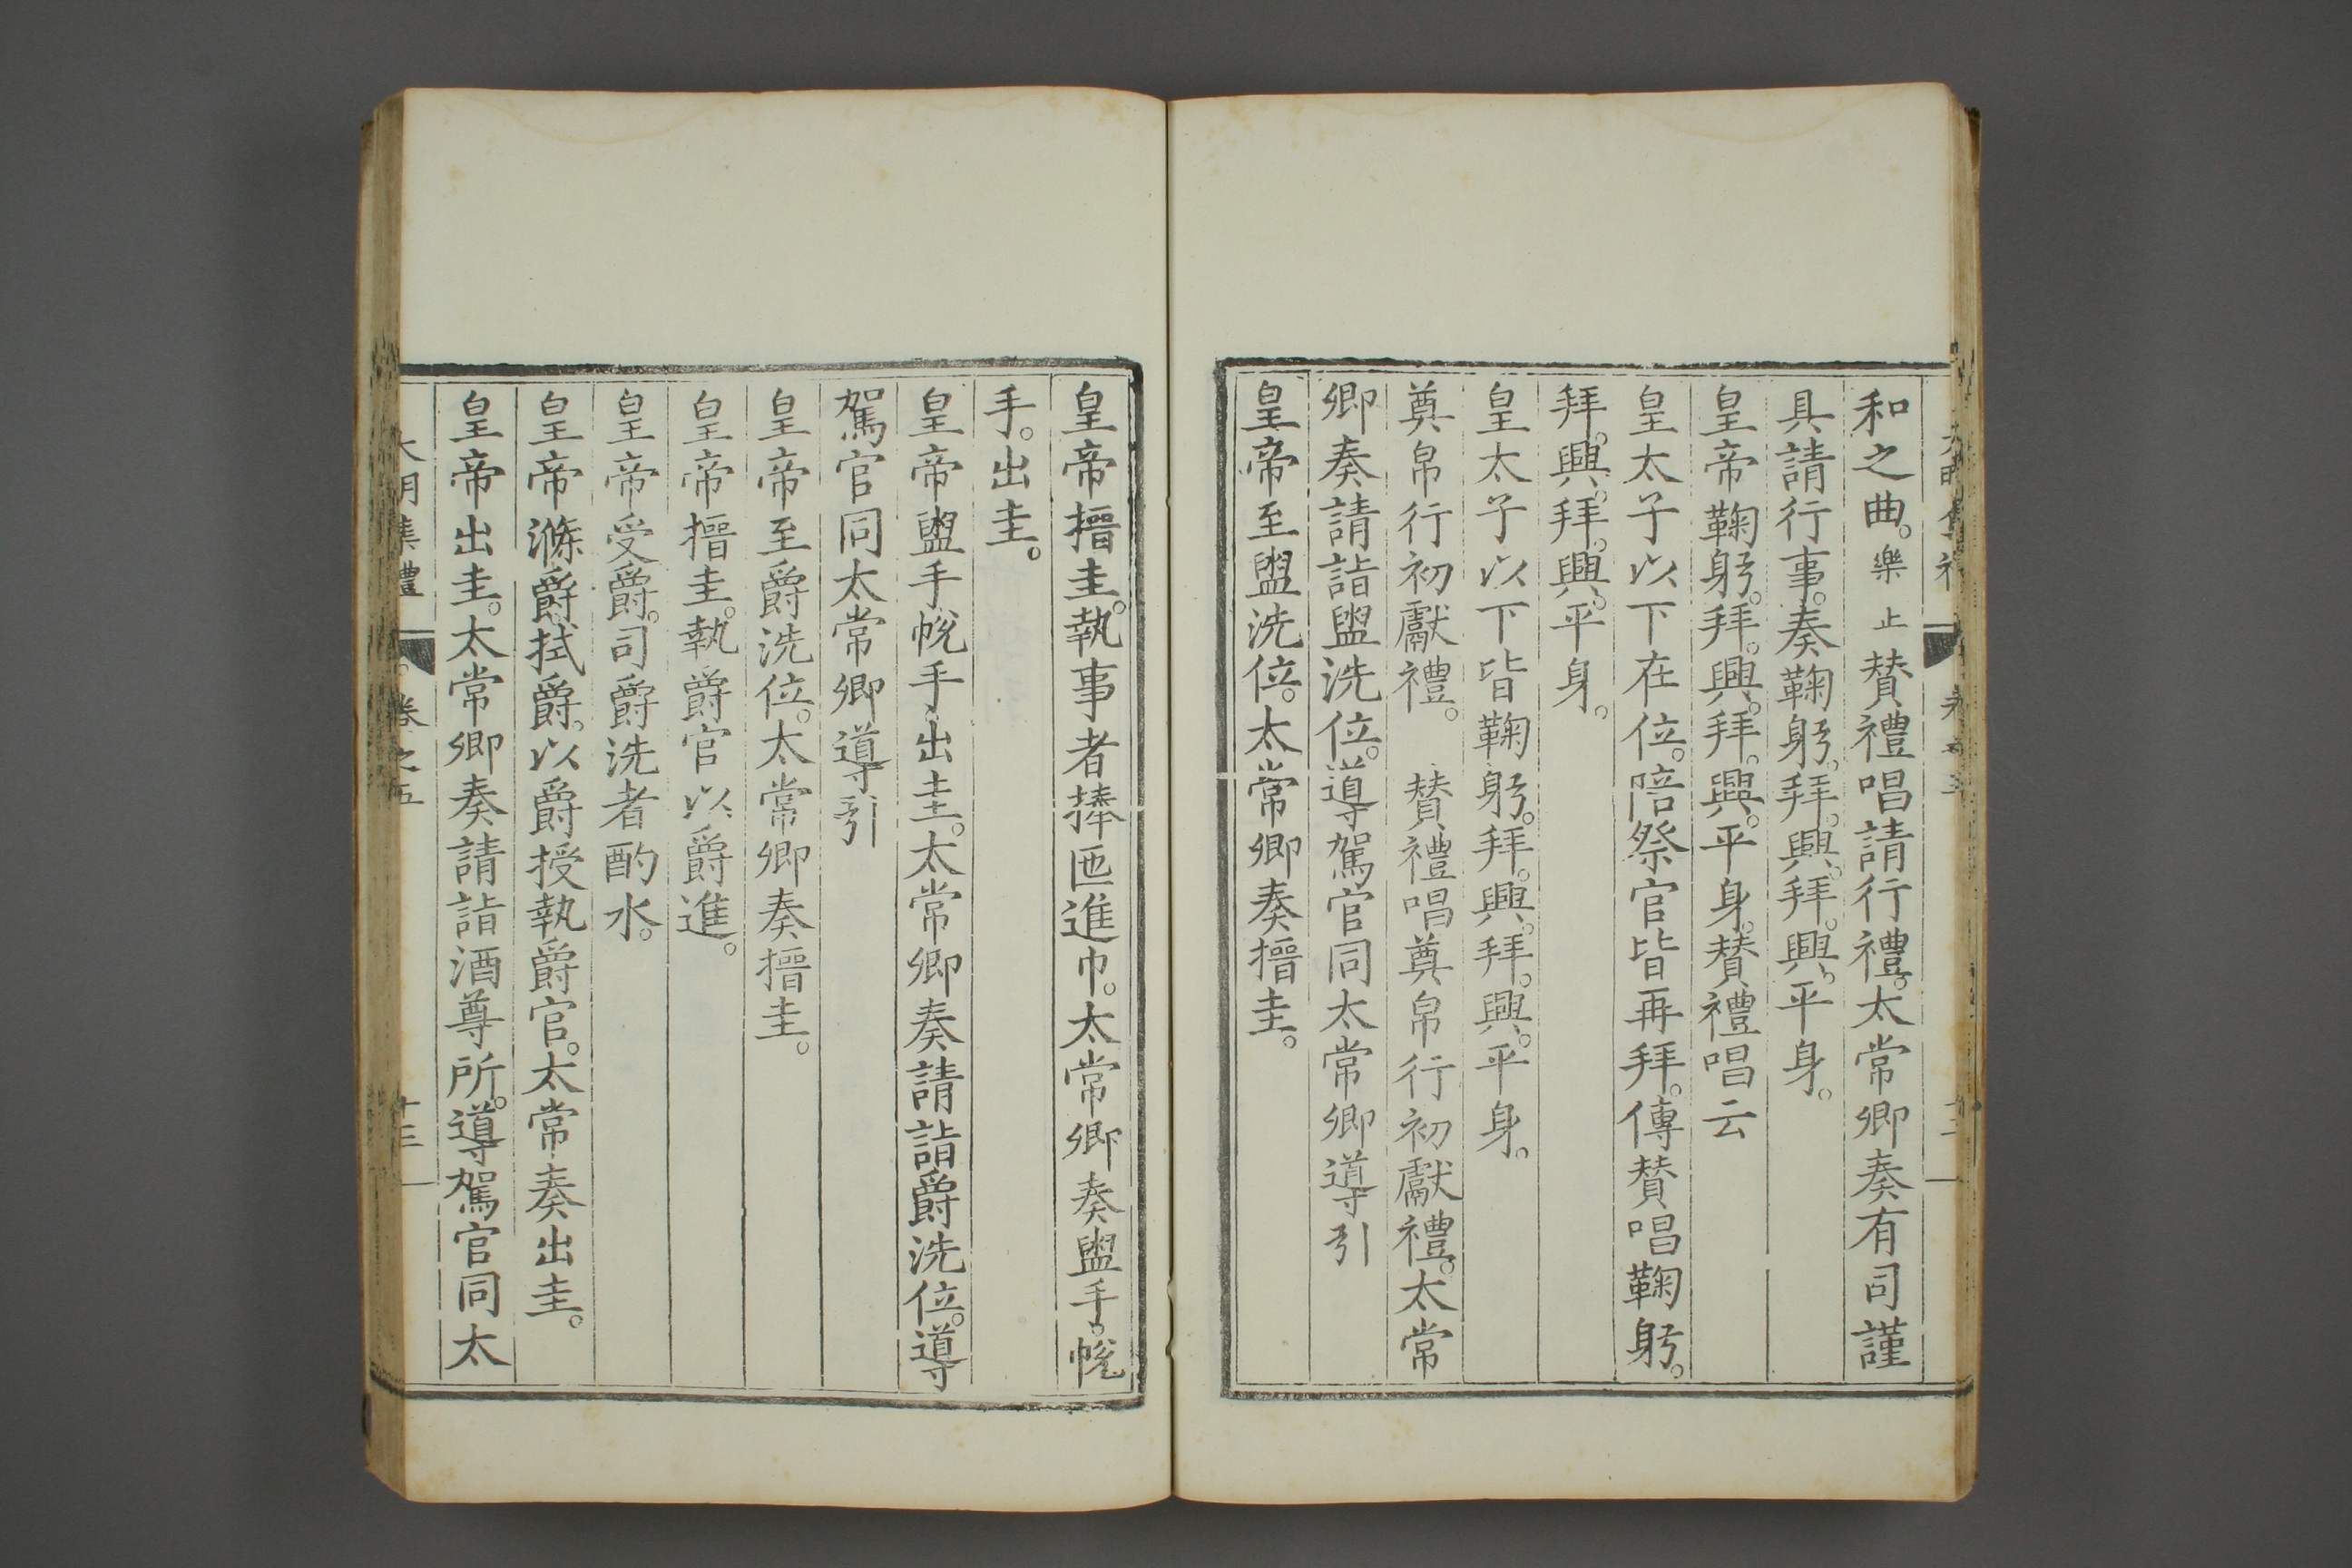 和之曲。樂止贊禮唱請行禮。太常卿奏有司謹
具請行事。奏鞠躬。拜。興。拜。興。平身。
皇帝鞠躬。拜。興。拜。興。平身。贊禮唱云
皇太子以下在位。陪祭官皆再拜。傳贊唱鞠躬。
拜。興。拜。興。平身。
皇太子以下皆鞠躬。拜。興。拜。興。平身。
奠帛行初獻禮。贊禮唱奠帛行初獻禮。太常
卿奏請詣盥洗位。導駕官同太常卿導引
皇帝至盥洗位。太常卿奏搢圭。
皇帝搢圭。執事者捧匜進巾。太常卿奏盥手。帨
手。出圭。
皇帝盥手帨手出圭。太常卿奏請詣爵洗位。導
駕官同太常卿導引
皇帝至爵洗位。太常卿奏搢圭。
皇帝搢圭。執爵官以爵進。
皇帝受爵。司爵洗者酌水。
皇帝滌爵拭爵。以爵授執爵官。太常奏出圭。
皇帝出圭。太常卿奏請詣酒尊所。導駕官同太
大明集禮 卷之五 十三